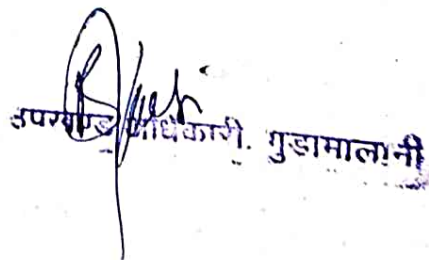 उपखण्ड अधिकारी. गुडामालानी